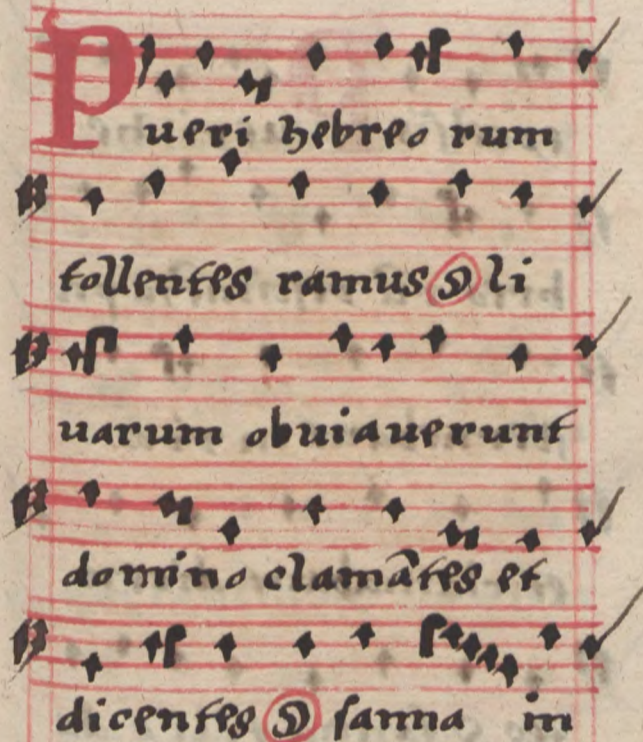 Pueri hebreo rum
tollentes ramus O li
uarum obuiauerunt
domino clamãtes et
dicentes O sanna in